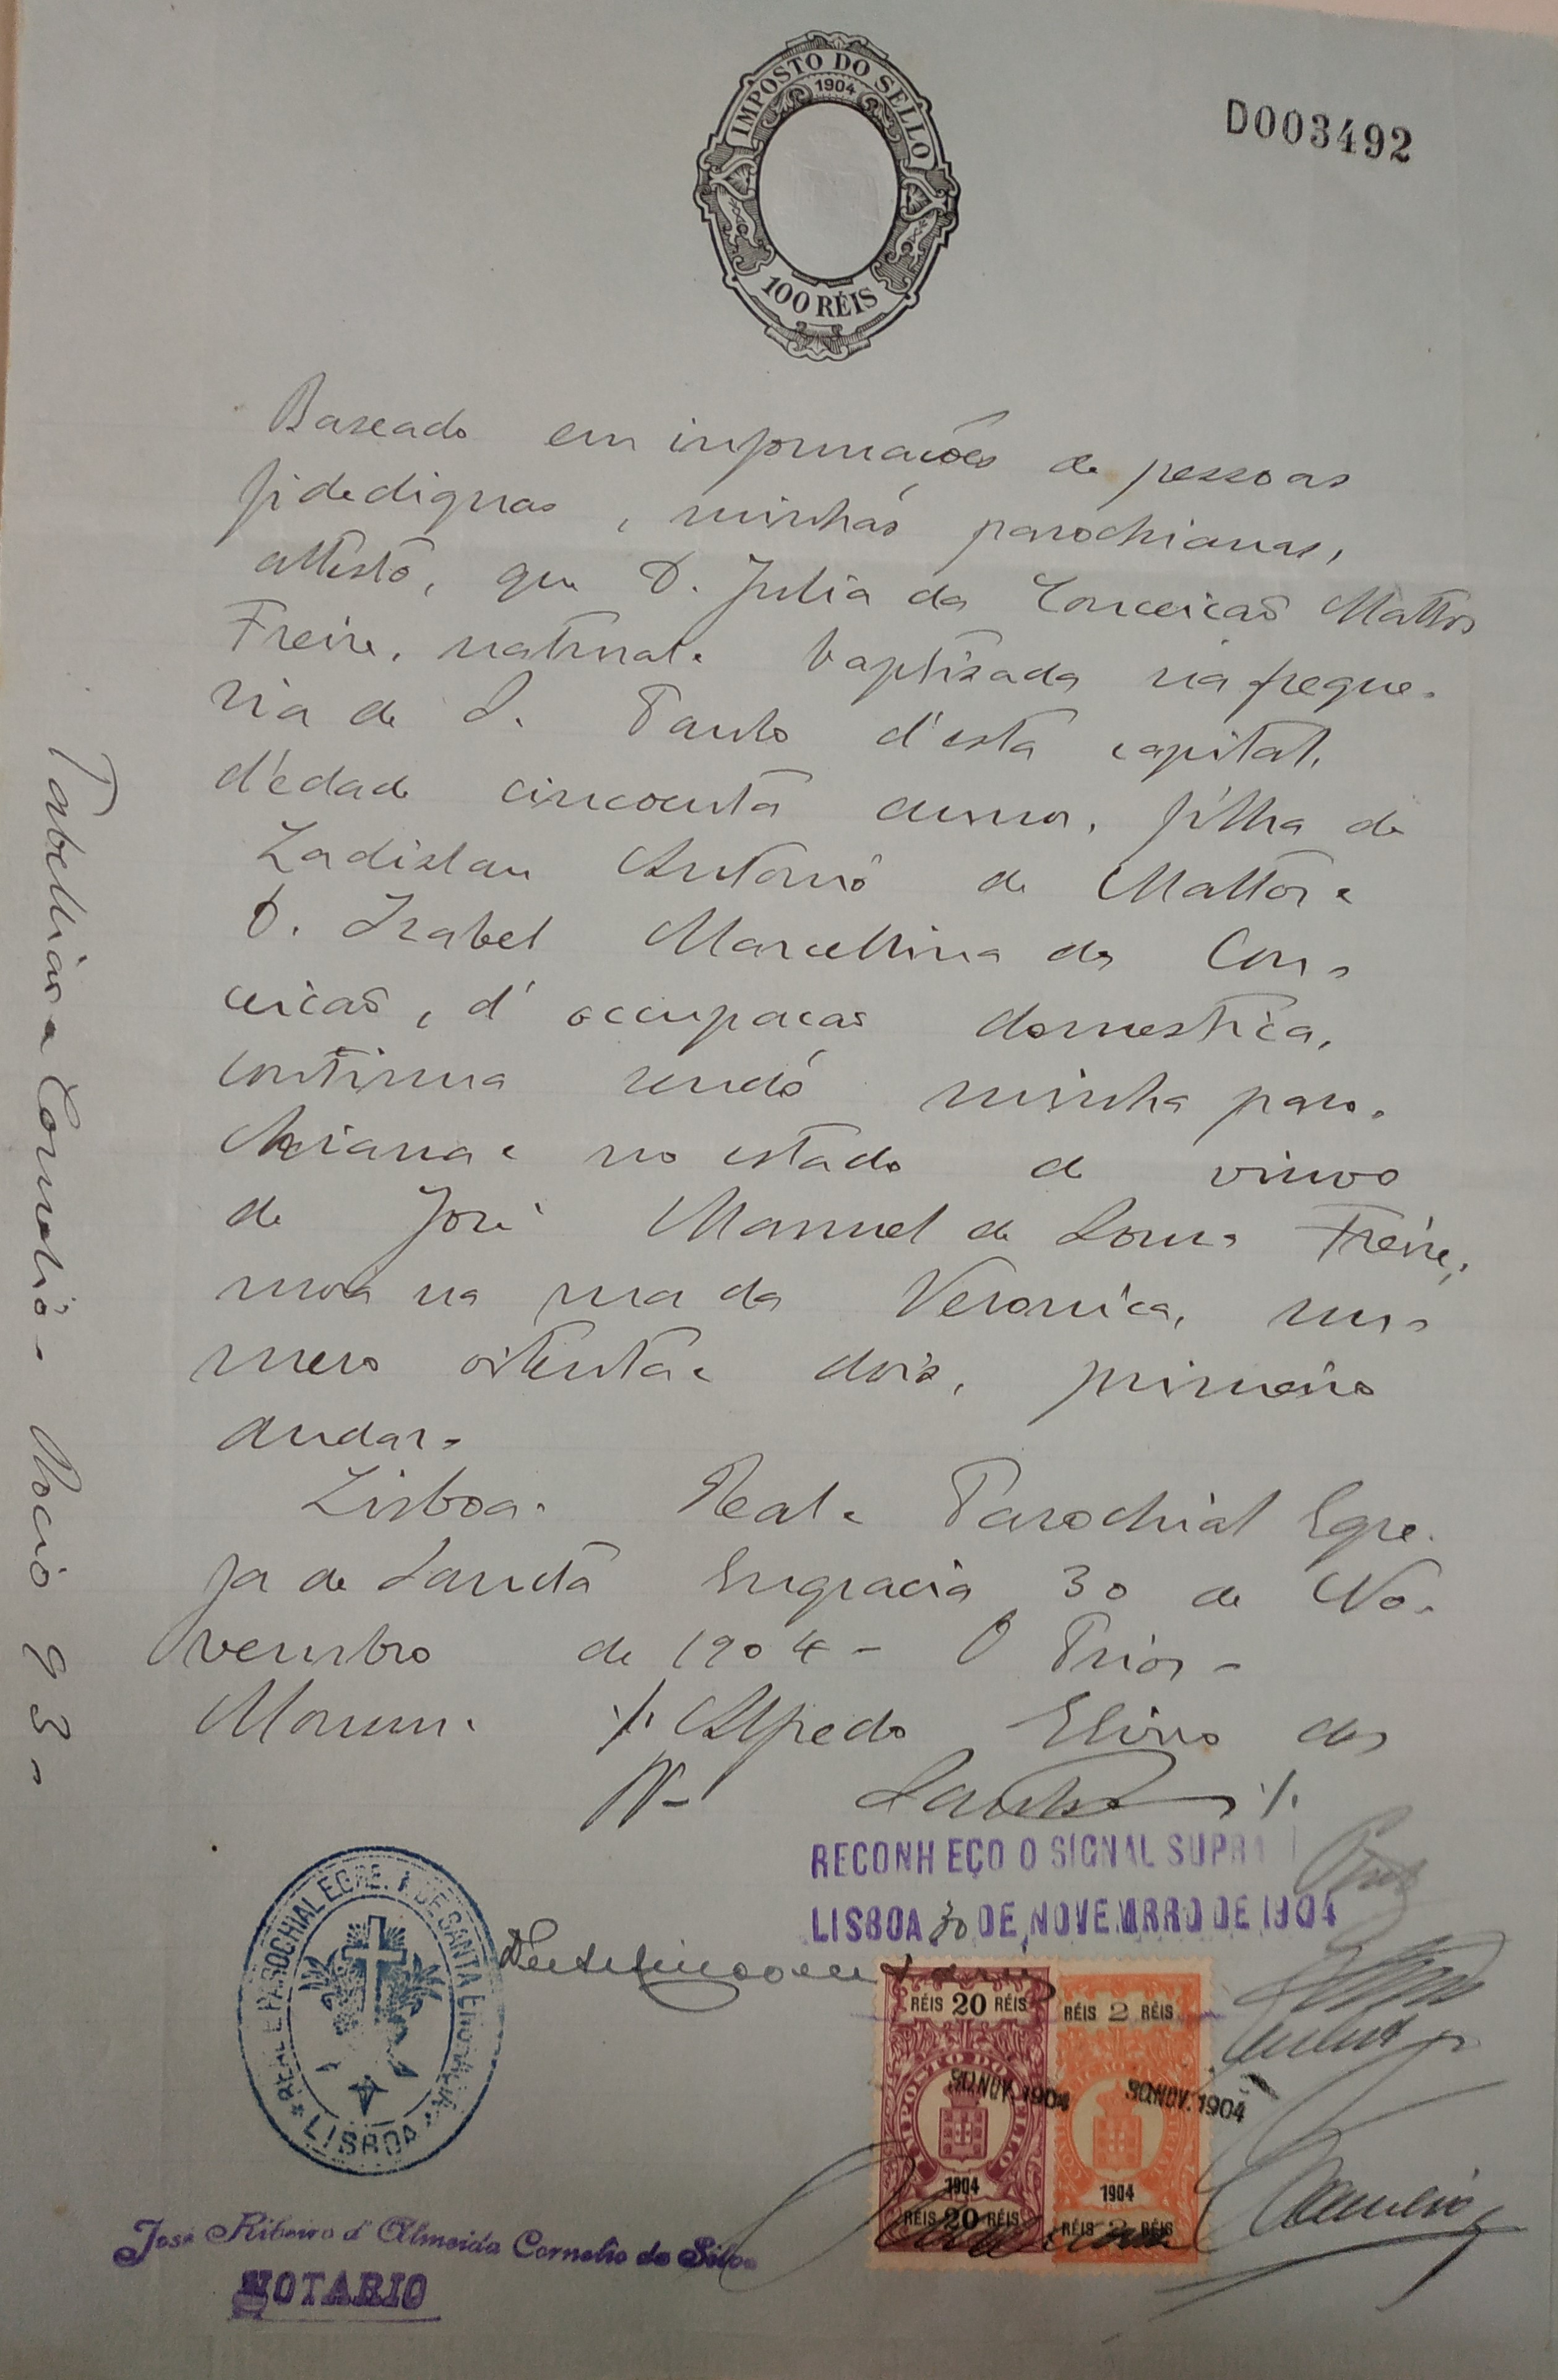 IMPOSTO DO SELLO
1904
100 RÉIS
D003492
Baseado em informações de pessoas
fidedignas, minhas parochianas,
attesto, que D. Julia da Conceicão Mattos
Freire, natural e baptisada na fregue-
sia de S. Paulo d'esta capital,
d'edade cincoenta annos, filha de
Ladislau Antonio de Mattos e
D. Izabel Marcellina da Con-
ceicão, d'occupacao domestica,
continua sendo minha paro-
chiana e no estado de viuva
de José Manuel de Sousa Freire,
mora na rua da Veronica, nu-
mero oitenta e dois, primeiro
andar.
Lisboa. Real e Parochial Egre-
ja de Santa Engracia 30 de No-
vembro de 1904 - O Prior -
Monsr. Alfredo Elviro dos
Santos
Tabellião Cornelio - Rocio 93 -
RECONHEÇO O SIGNAL SUPRA
LISBOA 30 DE NOVEMBRO DE 1904
REAL E PAROCHIAL EGREJA DE SANTA ENGRACIA
LISBOA
RÉIS 20 RÉIS
IMPOSTO DO SELLO
30.NOV.1904
1904
RÉIS 20 RÉIS
RÉIS 2 RÉIS
30.NOV.1904
1904
RÉIS 2 RÉIS
José Ribeiro d'Almeida Cornelio da Silva
NOTARIO